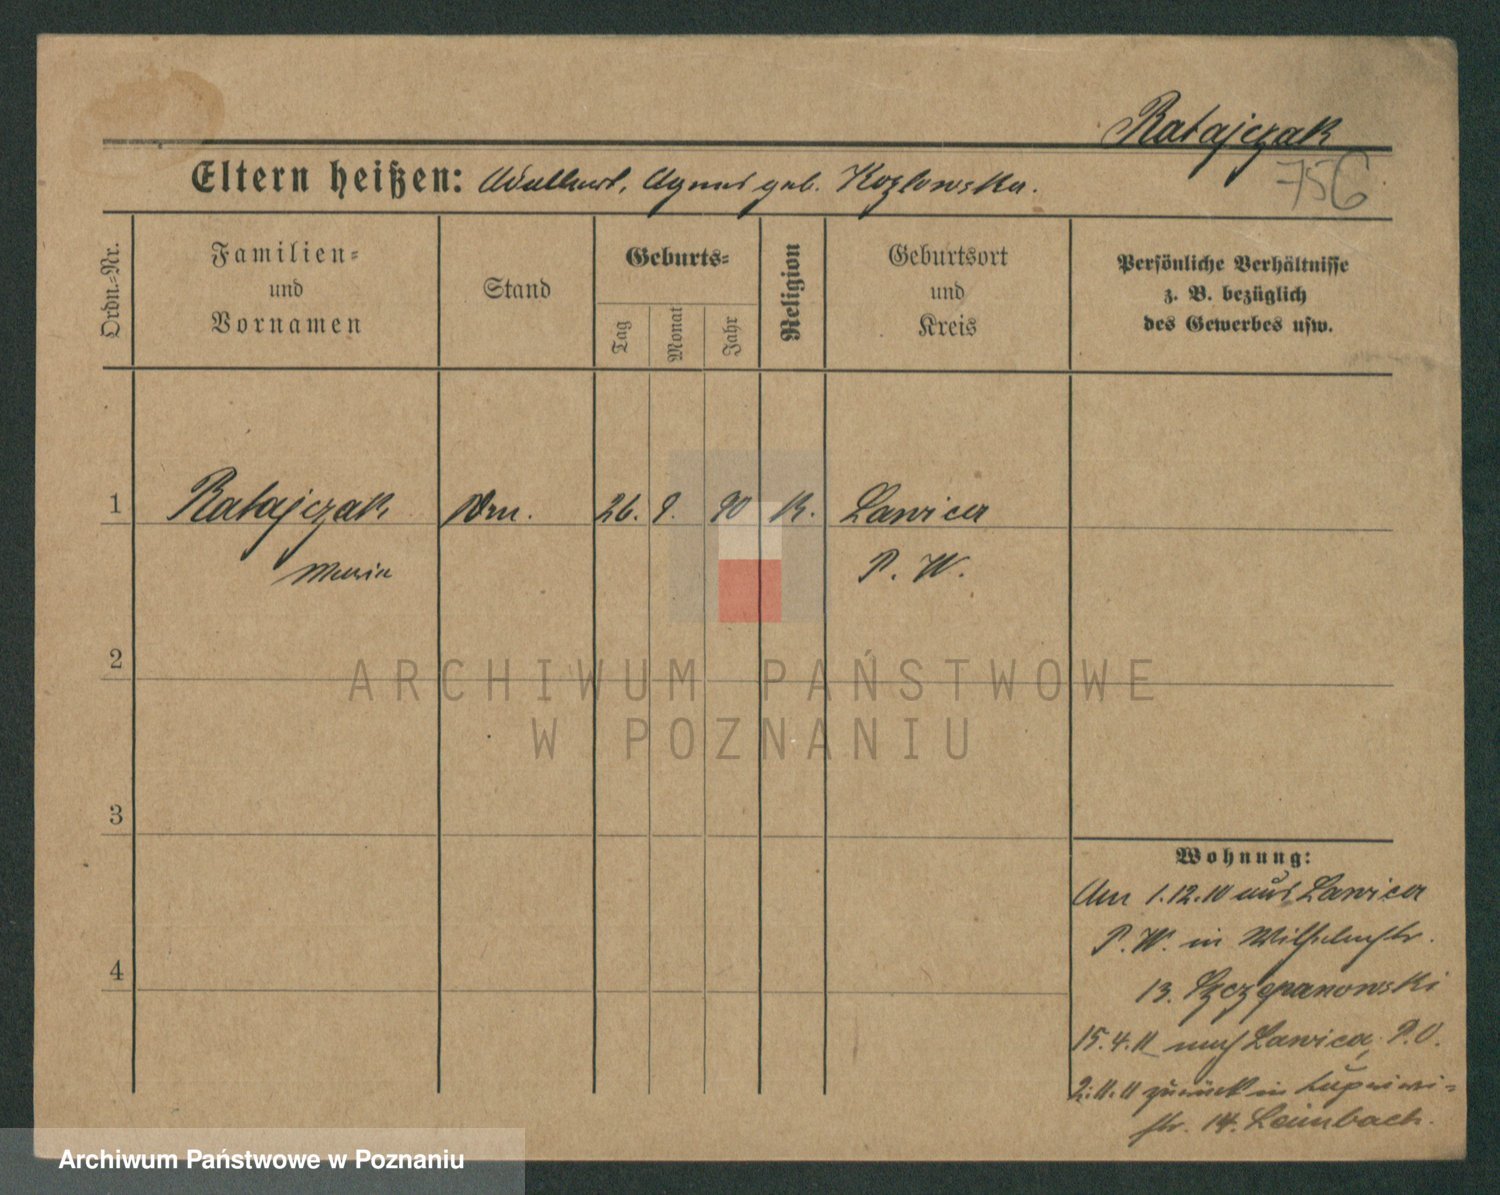 Ratajczak
756
Eltern heißen: Adalbert, Agnes geb. Kozlowska.
Ordn.-Nr.
Familien-
und
Vornamen
Stand
Geburts-
Tag
Monat
Jahr
Religion
Geburtsort
und
Kreis
Persönliche Verhältnisse
z. B. bezüglich
des Gewerbes usw.
1 Ratajczak 26. 9. 90 K. Lawica
Maria P. W.
2
3
4
Wohnung:
Am 1.12.10 aus Lawica
P. W. in Wilhelmstr.
13. Szczepanowski
15.4.11 nach Lawica, P. O.
2.11.11 zurück in
str. 14. Leimbach.
ARCHIWUM PAŃSTWOWE
W POZNANIU
Archiwum Państwowe w Poznaniu